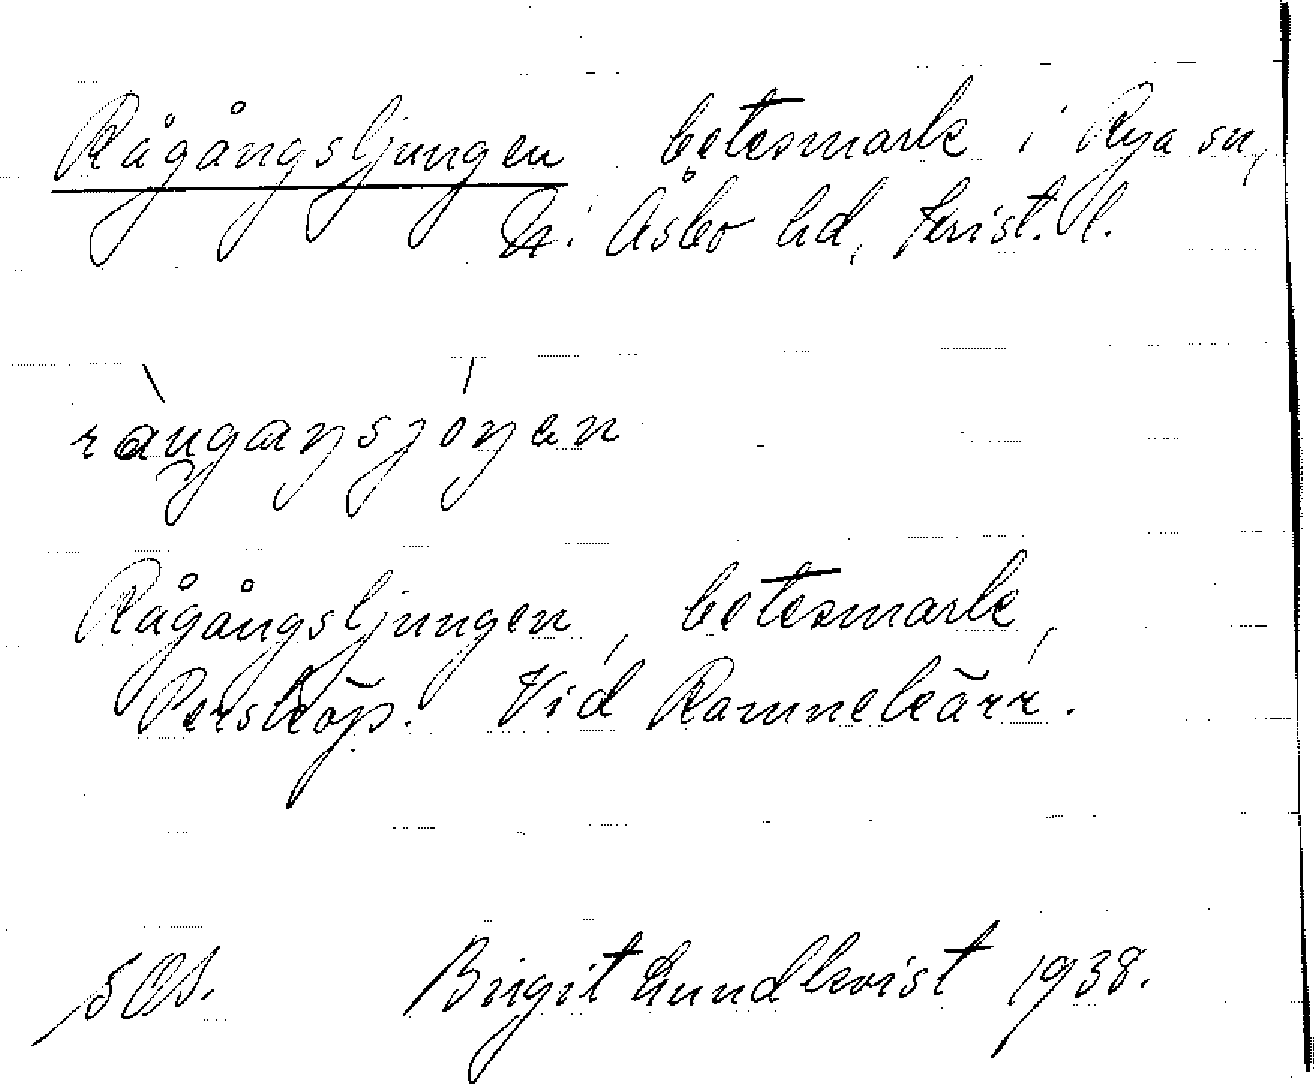 Rågångsljungen betesmark i Rya sn,
N. Åsbo hd, Krist. l.
Rågångsljungen, betesmark,
Perskøp. Vid Ramnekärr.
SOS. Birgit Lundkvist 1938.